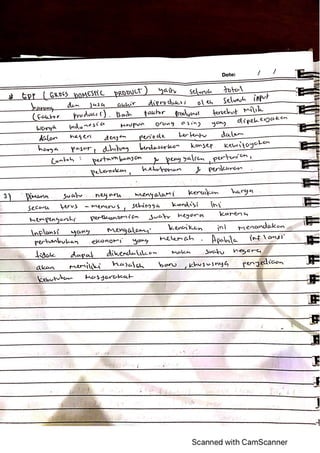 Date: / /
GDP (GROSS DOMESTIC PRODUCT) yaitu seluruh total
barang dan jasa akhir diproduksi oleh seluruh input
(faktor produksi). Baik faktor produksi tersebut milik
warga Indonesia maupun orang asing yang dipekerjakan
dalam negeri dengan periode tertentu dalam
harga pasar, dihitung berdasarkan konsep kewilayahan
Contoh : pertambangan & penggalian, pertanian,
peternakan, kehutanan & perikanan
3) Dimana suatu negara mengalami kenaikan harga
secara terus - menerus, sehingga kondisi ini
mempengaruhi perekonomian suatu negara karena
Inflansi yang mengalami kenaikan ini menandakan
pertumbuhan ekonomi yang melemah. Apabila inflansi
tidak dapat dikendalikan maka suatu negara
akan memiliki masalah baru, khususnya penyediaan
kebutuhan masyarakat
Scanned with CamScanner